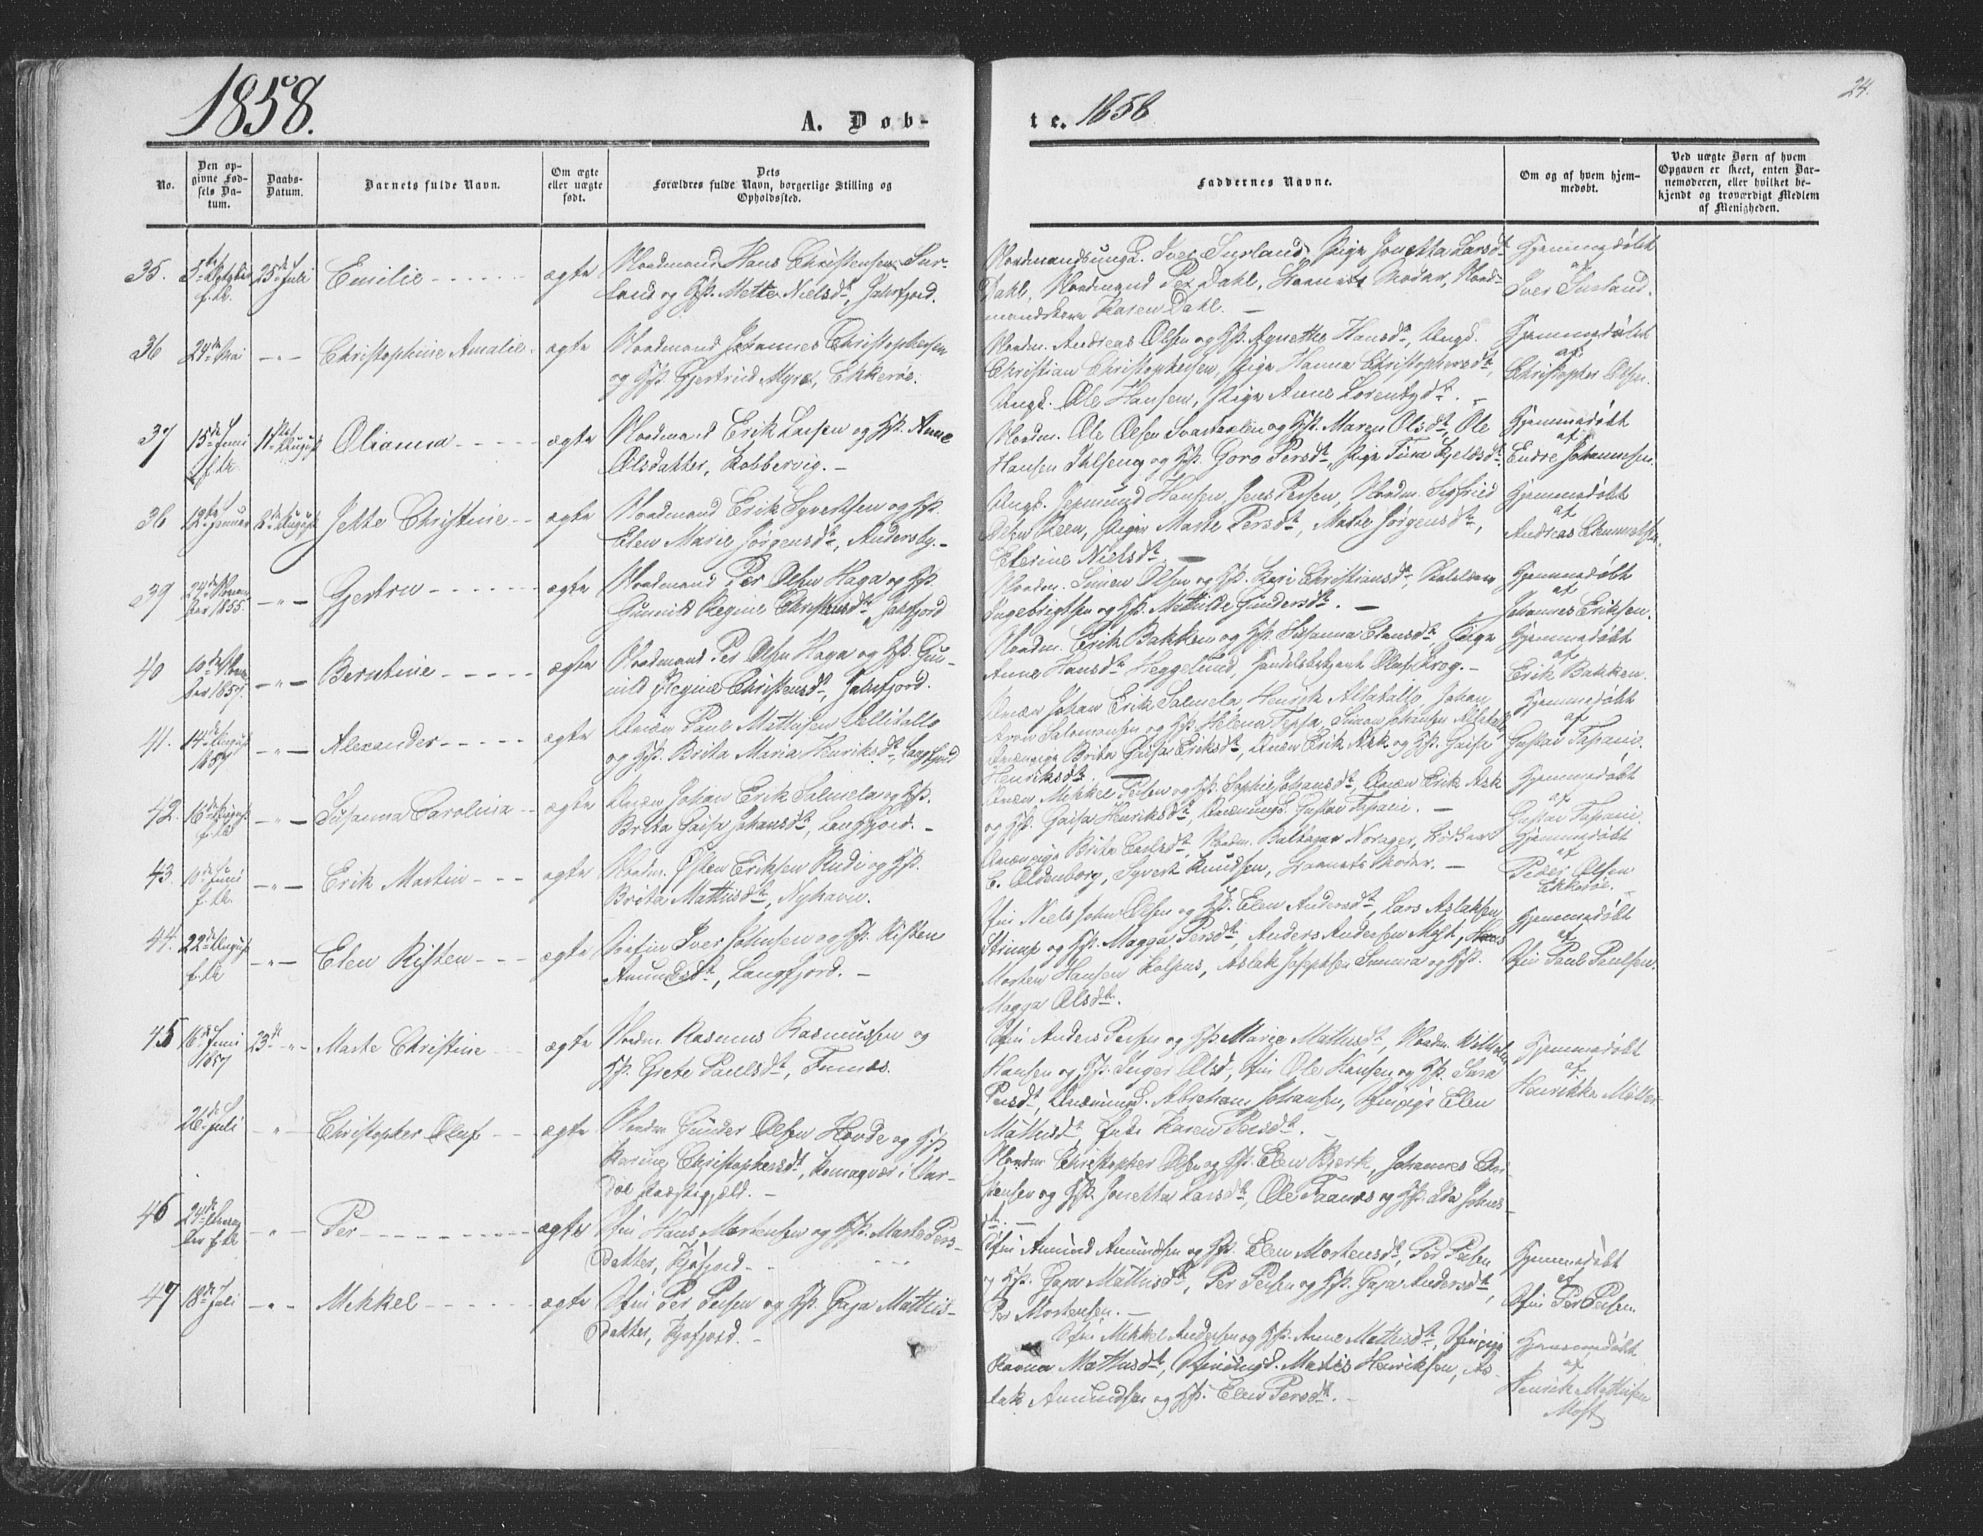 1858.
A. Døb-
te. 1858
24.
No.
Den op-
givne Fød-
sels Da-
tum.
Daabs-
Datum.
Barnets fulde Navn.
Om ægte
eller uægte
født.
Dets
Forældres fulde Navn, borgerlige Stilling og
Opholdssted.
Faddernes Navne.
Om og af hvem hjem-
medøbt.
Ved uægte Børn af hvem
Opgaven er skeet, enten Bar-
nemoderen, eller hvilket be-
kjendt og troværdigt Medlem
af Menigheden.
35. 25de Juli Emilie ægte Nordmand Hans Christensen Sur-
land og Hst. Mette Nielsdt, Jakfjord.
Nordmandsungd. Iver Surland, Pige Jonetta Larsdt
Dahl, Nordmand Per Dahl, Barnets Moder, Nord-
mandskone Karen Dahl. —
Hjemmedøbt
af
Iver Surland.
36 24de Mai — " — Christophine Amalie ægte Nordmand Johannes Christophersen
og Hst. Gjertrud Myre, Ekkerøe.
Nordm. Andreas Olsen og Hst. Agnette Hansdt, Ungd.
Christian Christophersen, Pige Hanna Christophersdt,
Ungd. Ole Hansen, Pige Anne Lorentzdt. —
Hjemmedøbt
af
Christopher Olsen.
37 15de Juni f. Aar 1ste August Olianna ægte Nordmand Erik Larsen og Hst. Anne
Olsdatter, Kobbervig. —
Nordm. Ole Olsen og Hst. Maren Olsdt, Ole
Hansen og Hst. Goro Persdt, Pige Tina Kjeldsdt.
Hjemmedøbt
af
Endre Johannesen.
38 12te Januar 8de August Jette Christine ægte Nordmand Erik Syvertsen og Hst.
Elen Marie Jørgensdt, Andersby. —
Ungk. Hansen, Jens Persen, Nordm. Sigfried
Olsen Keen, Piger Marte Persdt, Marte Jørgensdt,
Elerine Nielsdt. —
Hjemmedøbt
af
Andreas
39 24de Novem-
ber 1855. — " — Gjertru ægte Nordmand Per Olsen Haga og Hst.
Gunild Regine Christensdt, Jakfjord
Nordm. Simen Olsen og Hst. Kari Christiansdt,
Ingebrigtsen og Hst. Mathilde Gundersdt. —
Hjemmedøbt
af
Johannes Eriksen.
40 10de Novem-
ber 1857. — " — Berntine ægte Nordmand Per Olsen Haga og Hst. Gun-
nild Regine Christensdt, Jakfjord.
Nordm. Erik Bakken og Hst. Susanna Clausdt, Pige
Anne Hansdt Heggelund, Handelsbetjent Oluf Krog. —
Hjemmedøbt
af
Erik Bakken.
41. 14de August
1857 — " — Alexander ægte Qvæn Paul Mathisen Vellitallo
og Hst. Brita Maria Henriksdt, Langfjord
Qvæn Johan Erik Salmela, Henrik Alatallo, Johan
Aron Salomonsen og Hst. Helena Teppa, Simon Johansen
Qvænpige Brita Caisa Eriksdt, Qvæn Erik Ask og Hst. Caisa
Henriksdt. —
Hjemmedøbt
af
Gustav Tapani.
42. 16de August
f. Aar — " — Susanna Carolina ægte Qvæn Johan Erik Salmela og Hst.
Brita Caisa Johansdt, Langfjord. —
Qvæn Mikkel Persen og Hst. Sophie Johansdt, Qvæn Erik Ask
og Hst. Caisa Henriksdt, Qvænungd. Gustav Tapani. —
Hjemmedøbt
af
Gustav Tapani.
43. 10de Juni
f. Aar — " — Erik Martin ægte Nordm. Østen Eriksen Rudi og Hst.
Brita Mathisdt, Nyhavn.
Qvænpige Brita Carlsdt, Nordm. Baltazar Norager,
C. Oldenborg, Syvert Knudsen, Barnets Moder. —
Hjemmedøbt
af
Peder Olsen
Ekkerøe.
44. 22de August
f. Aar — " — Elen Kisten ægte Søefin Iver Johnsen og Hst. Kisten
Amundsdt, Langfjord. —
Fin Niels John Olsen og Hst. Elen Andersdt, Lars Aslaksen
Strimp og Hst. Magga Persdt, Anders Andersen Mast, Hans
Morten Hansen Kalpus, Aslak Josephsen og Hst.
Magga Olsdt.
Hjemmedøbt
af
Fin Paul Paulsen.
45 16de Juni
1857 23de " — Marte Christine ægte Nordm. Rasmus Rasmussen og
Hst. Grete Paulsdt, Finnæs.
Fin Anders Persen og Hst. Marie Mathisdt, Nordm. Wilhelm
Hansen og Hst. Inger Olsdt, Fin Ole Hansen og Hst. Sara
Persdt, Qvænungd. Abraham Johansen, Finpige Elen
Mathisdt, Enke Karen Persdt. —
Hjemmedøbt
af
Henrikke Møller
26de Juli — " — Christopher Oluf ægte Nordm. Gunder Olsen Hovde og Hst.
Karine Christophersdt, Komagvær i Var-
døe Præstegjæld. —
Nordm Christopher Olsen og Hst. Elen Bjerk, Johannes Chri-
stensen og Hst. Jonetta Larsdt, Ole Taanæs og Hst. Ida Johns-
dt. —
46 24de
f. Aar — " — Per ægte Fin Hans Mortensen og Hst. Marte Pers-
datter, Kjøfjord. —
Fin Amund Amundsen og Hst. Elen Mortensdt, Per Persen
og Hst. Gaja Mathisdt, Per Persen og Hst. Gaja Andersdt,
Per Mortensen. —
Hjemmedøbt
af
Fin Per Persen.
47 18de Juli — " — Mikkel ægte Fin Per Persen og Hst. Gaja Mathis-
datter, Kjøfjord. —
Fin Mikkel Andersen og Hst. Anne Mathisdt, Finpige
Ravna Mathisdt, Finungd. Mathis Henriksen, As-
lak Amundsen og Hst. Elen Persdt. —
Hjemmedøbt
af
Henrik Mathisen
Mast